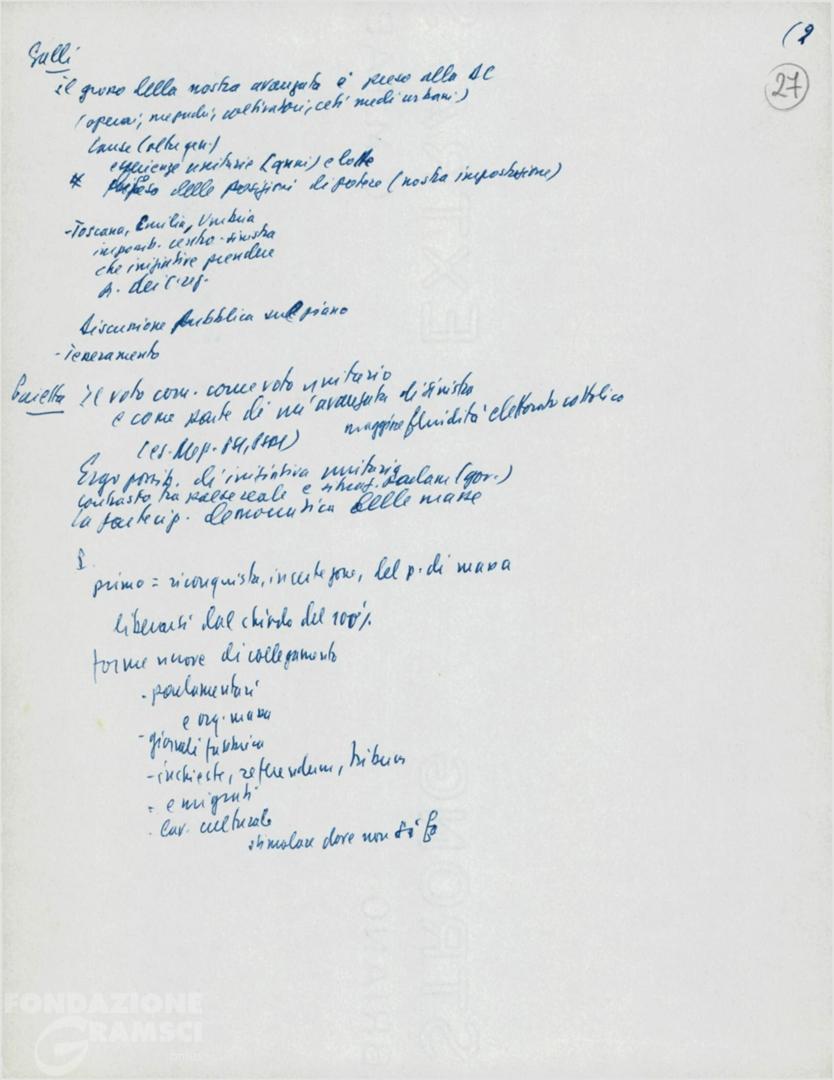 (2
27
Galli
il grosso della nostra avanzata è preso alla DC
(operai, mezzadri, coltivatori, ceti medi urbani)
Cause (oltre gen.)
esperienze unitarie (anni) e lotte
* difesa delle posizioni di potere (nostra impostazione)
- Toscana, Emilia, Umbria
imposs. centro-sinistra
che iniziative prendere
p. dei C. reg.
Discussione pubblica sul piano
- Tesseramento
Pajetta il voto com. come voto unitario
e come parte di un'avanzata di sinistra
(es. PSI, PSDI) maggiore fluidità elettorato cattolico
Ergo possib. di iniziativa unitaria
contrasto tra paese reale e situaz. parlam (gov.)
la partecip. democratica delle masse
primo = riconquista, in certe zone, del p. di massa
liberarsi dal chiodo del 100%
forme nuove di collegamento
- parlamentari
e org. massa
- giornali fabbrica
- inchieste, referendum, tribun
- emigrati
- Lav. culturale
stimolare dove non si fa
FONDAZIONE
GRAMSCI